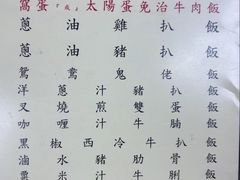 窩蛋 太陽蛋免治牛肉飯
蔥油雞扒飯
蔥油豬扒飯
鴛鴦鬼佬飯
洋蔥汁豬扒飯
叉燒煎雙蛋飯
咖喱汁牛腩飯
黑椒西冷牛扒飯
滷水豬肋骨飯
粟米汁牛脷飯